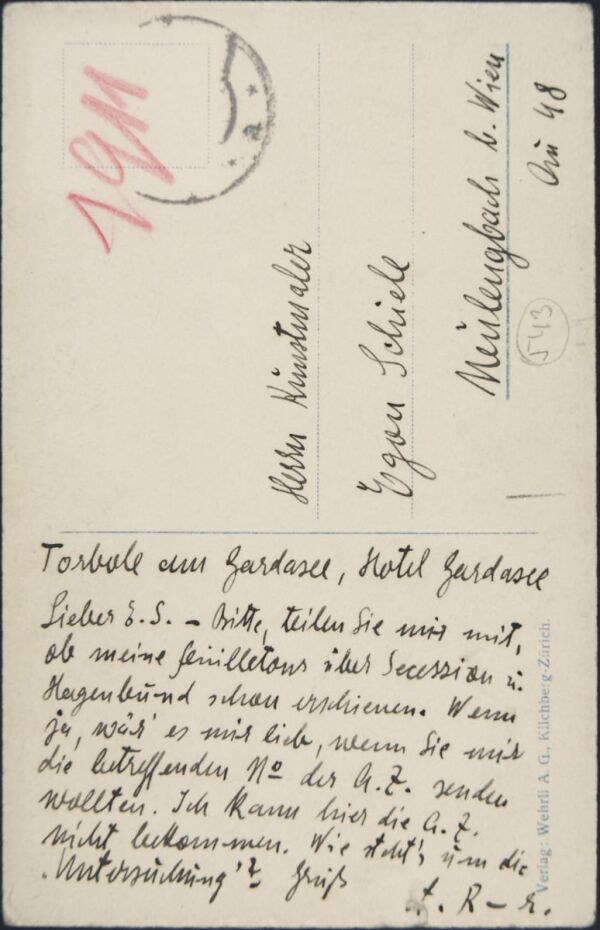 1911
Herrn Kunstmaler
Egon Schiele
Neulengbach b. Wien
Au 48
543
Torbole am Gardasee, Hotel Gardasee
Lieber E. S. – Bitte, teilen Sie mir mit,
ob meine Feuilletons über Secession u.
Hagenbund schon erschienen. Wenn
ja, wär' es mir lieb, wenn Sie mir
die betreffenden No der A. Z. senden
wollten. Ich kann hier die A. Z.
nicht bekommen. Wie steht's um die
„Untersuchung"? Gruß
R – r.
Verlag: Wehrli A. G., Kilchberg-Zürich.